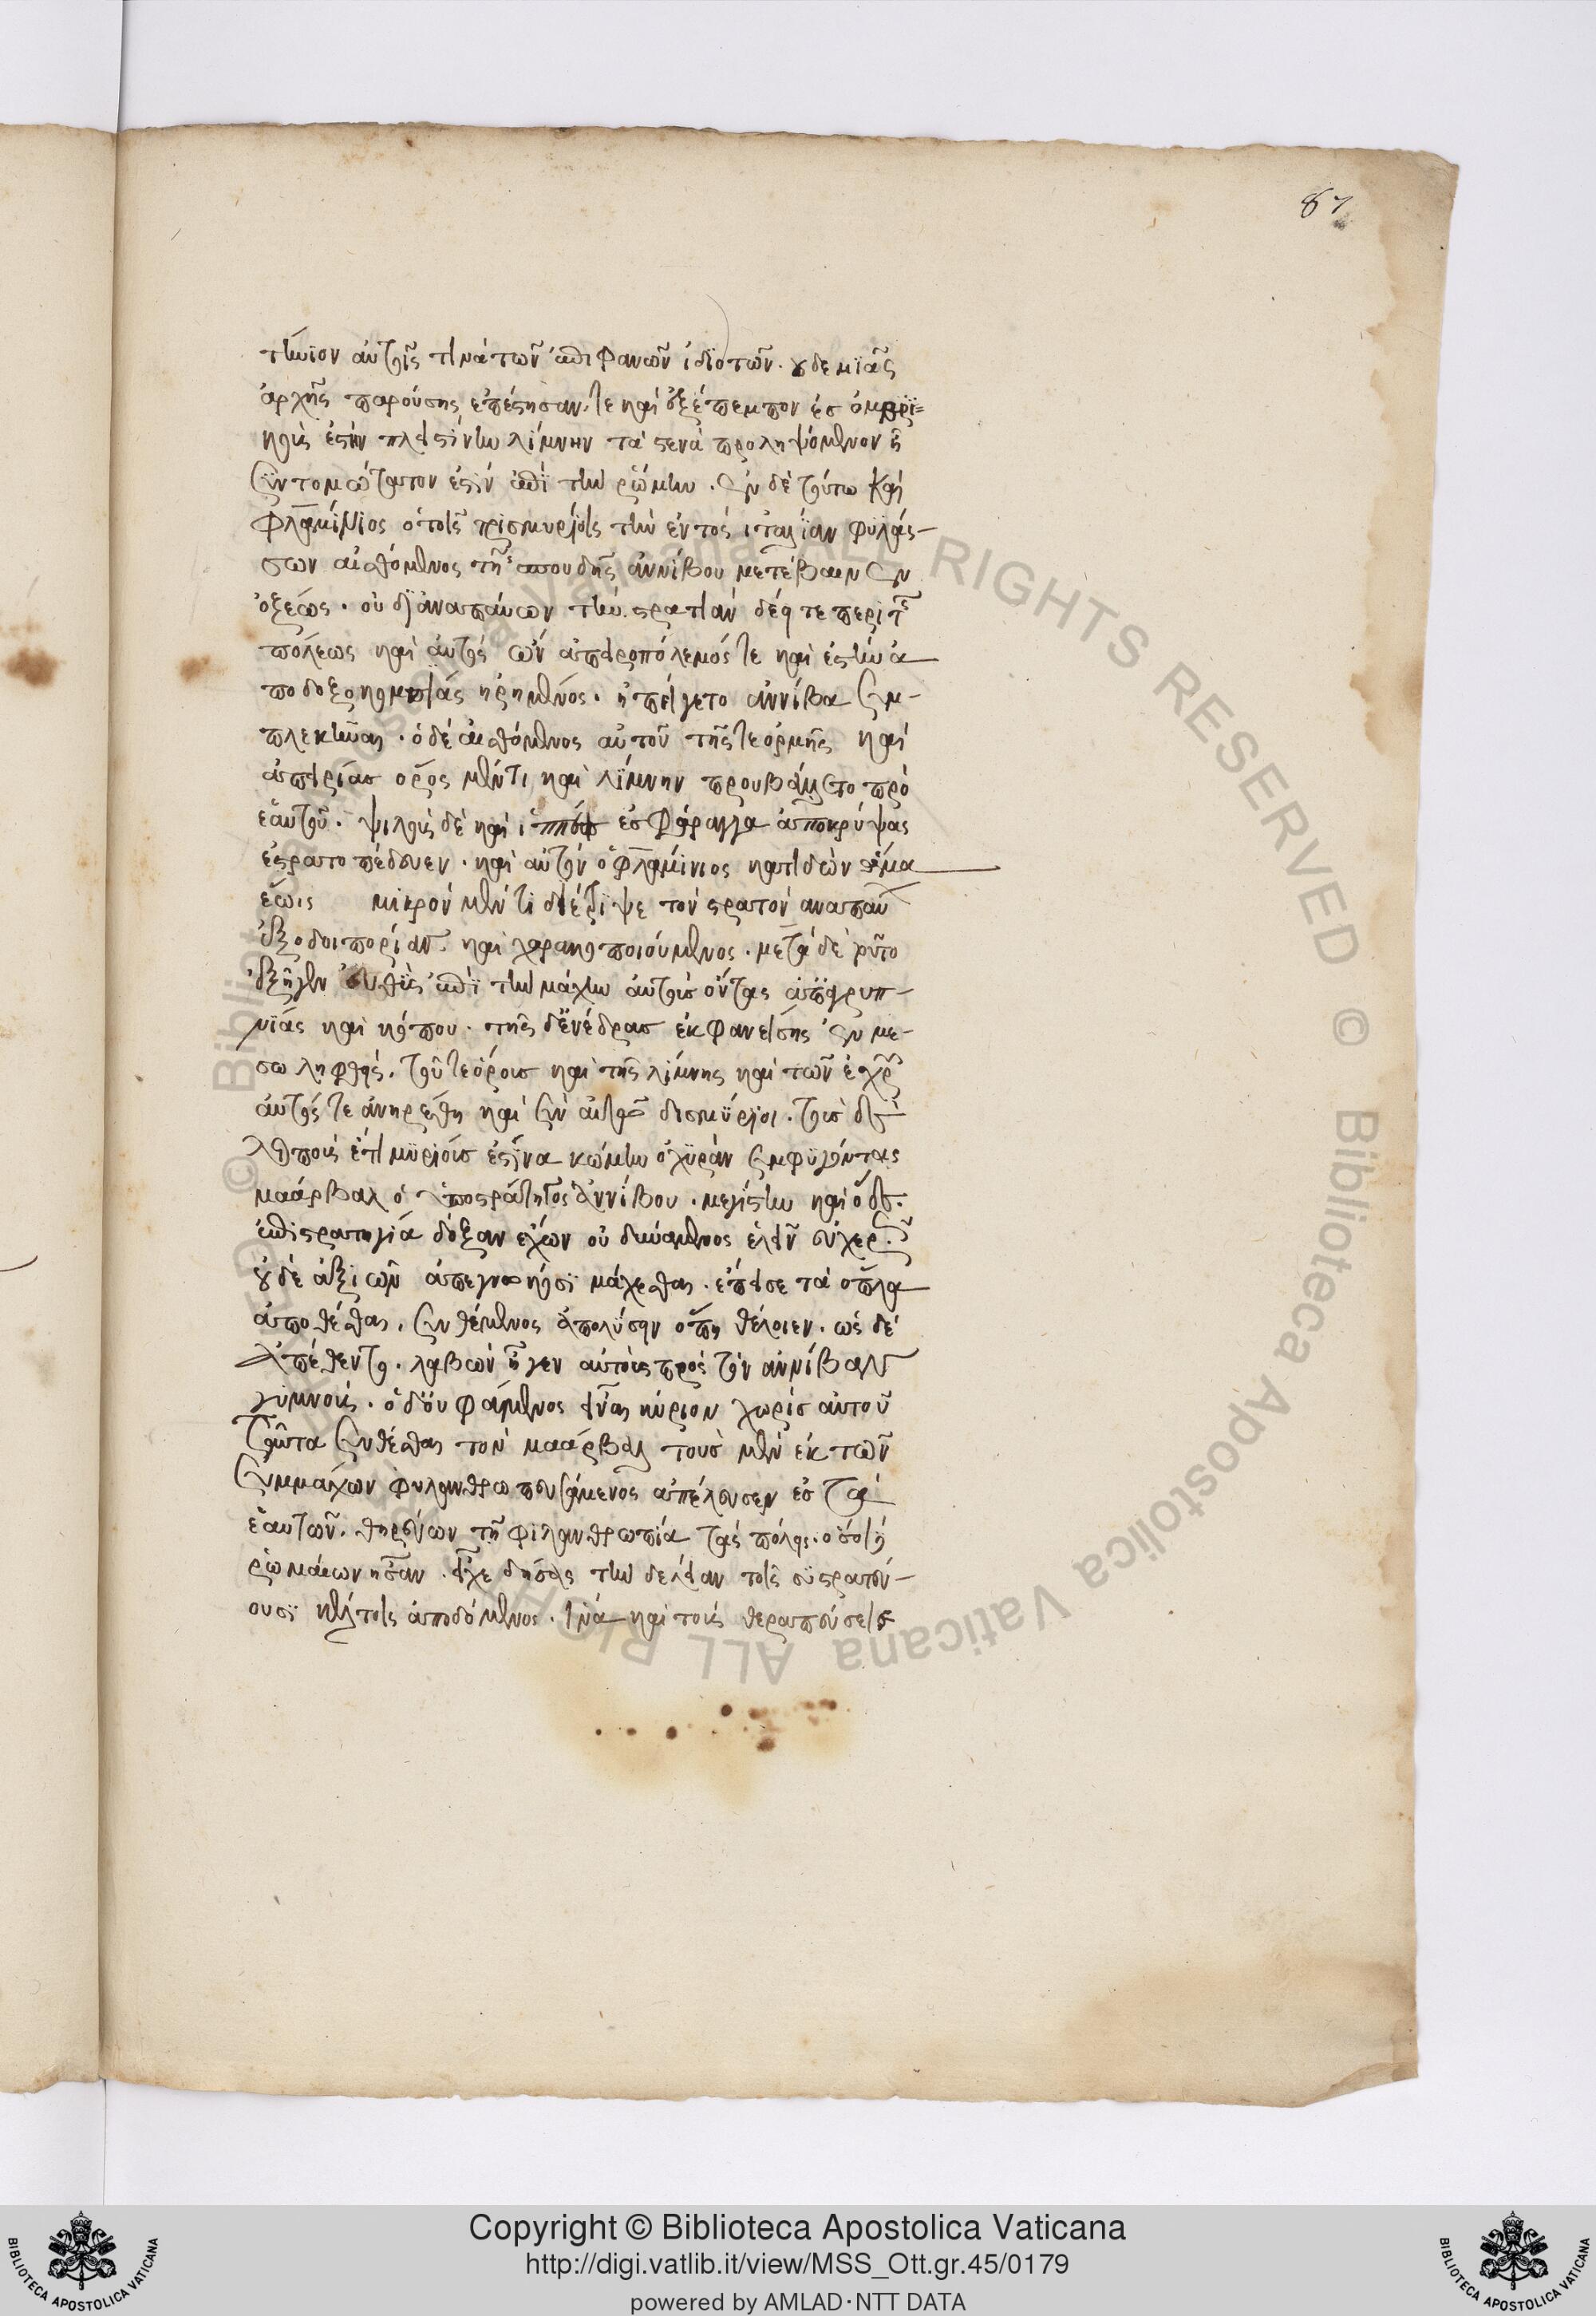 87
τήνιον αὐτοῖς τινὰ τῶν ἐπιφανῶν ἰδϊοτῶν. οὐδεμϊᾶς
ἀρχῆς παρούσης, ἐπέστησάν τε καὶ ἐξέπεμπον ἐς ὀμβρϊ=
κοὺς ἐς τὴν πλειστίνην λίμνην τὰ στενὰ προληψόμενον ᾗ
συντομώτατον ἐστὶν ἐπὶ τὴν ῥώμην. ἐν δὲ τούτω καὶ
Φλαμίνιος ὁ τοῖς τρισμυρίοις τὴν ἐντὸς ἰταλίαν φυλάσ-
σων αἰσθόμενος τῆς σπουδῆς ἀννίβου μετέβαινεν
ὀξέως. οὐ διαναπαύων τὴν στρατιάν δέει τε περὶ τῆς
πόλεως καὶ αὐτὸς ὢν ἀπειροπόλεμός τε καὶ ἐς τὴν ἀ
πὸ δοξοκομπίας ἡρημένος. ἠπείγετο ἀννίβα συμ-
πλεκῆναι. ὁ δὲ αἰσθόμενος αὐτοῦ τῆς τε ὁρμῆς καὶ
ἀπειρίας ὄρος μέν τι καὶ λίμνην προυβάλετο πρὸ
ἑαυτοῦ. ψιλοὺς δὲ καὶ ἱππέας ἐς φάραγγα ἀποκρύψας
ἐστρατοπέδευεν. καὶ αὐτὸν ὁ φλαμίνιος κατιδὼν ἅμα
ἕωις μικρὸν μέν τι διέτριψε τὸν στρατὸν ἀναπαύ
ἐξ ὁδοιπορίαν. καὶ χαρακοποιούμενος. μετὰ δὲ τοῦτο
ἐξῆγεν εὐθὺς ἐπὶ τὴν μάχην αὐτοὺς ὄντας ἀπ' ἀγρυπ-
νίας καὶ κόπου. τῆς δ' ἐνέδρας ἐκφανείσης ἐν μέ-
σω ληφθεὶς. τοῦ τε ὄρους καὶ τῆς λίμνης καὶ τῶν ἐχθρῶν
αὐτός τε ἀνηρέθη καὶ σὺν αὐτῷ δισμύριοι. τοὺς δὲ
λοιποὺς ἔτι μυρίους ἔς τινα κώμην ὀχυρὰν συμφυγόντας
μαάρβαλ ὁ ὑποστράτηγος ἀννίβου. μεγίστην καὶ ὅδε
ἐπὶ στρατηγίᾳ δόξαν ἔχων οὐ δυνάμενος ἑλεῖν εὐχερῶς
οὐδὲ ἀξιῶν ἀπεγνωκόσι μάχεσθαι. ἔπεισε τὰ ὅπλα
ἀποθέσθαι. συνθέμενος ἀπολύσειν ὅπη θέλοιεν. ὡς δὲ
ἀπέθεντο. λαβὼν ἦγεν αὐτοὺς πρὸς τὸν ἀννίβαν
γυμνούς. ὁ δ' οὐ φάμενος εἶναι κύριον χωρὶς αὐτοῦ
ταῦτα συνθέσθαι τὸν μαάρβαλ τοὺς μὲν ἐκ τῶν
συμμάχων φιλανθρωπευσάμενος ἀπέλυσεν ἐς τὰ
ἑαυτῶν. θηρεύων τῇ φιλανθρωπίᾳ τὰς πόλεις. ὅσοι δὲ
ῥωμαίων ἦσαν. εἶχε δήσας τὴν δὲ λείαν τοῖς συστρατεύ-
ουσι κελτοῖς ἀποδόμενος. ἵνα καὶ τοὺς θεραπεύσειε
Copyright © Biblioteca Apostolica Vaticana
http://digi.vatlib.it/view/MSS_Ott.gr.45/0179
powered by AMLAD·NTT DATA